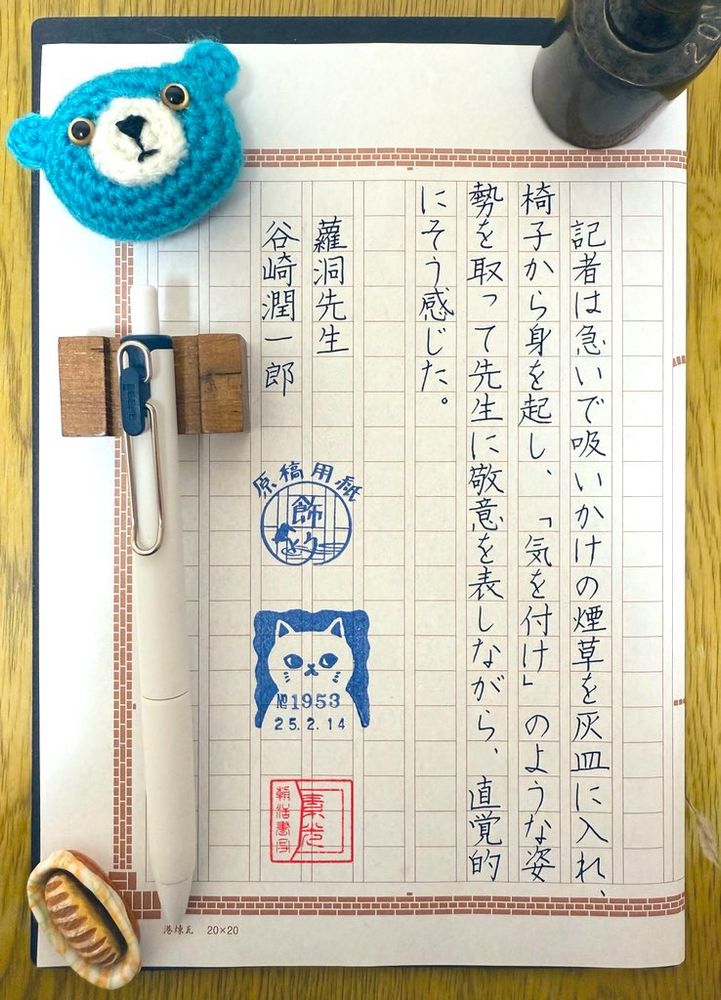 記者は急いで吸いかけの煙草を灰皿に入れ、
椅子から身を起し、「気を付け」のような姿
勢を取って先生に敬意を表しながら、直覚的
にそう感じた。
蘿洞先生
谷崎潤一郎
原稿用紙
飾
№1953
25.2.14
朝活書写
20×20